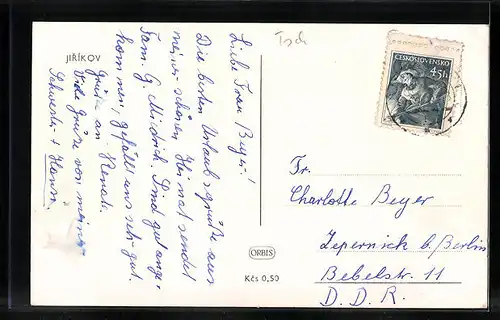 Tsch
JIŘÍKOV
Liebe Frau Beyer!
Die besten Urlaubsgrüße aus
meiner schönen Heimat sendet
Fam. G. Michich. Sind gut ange-
kommen, gefällt uns sehr gut.
Grüße an Renate.
Viele Grüße von meiner
Schwester + Hansi.
ČESKOSLOVENSKO
45h
Fr.
Charlotte Beyer
Zepernick b/Berlin
Bebelstr. 11
D. D. R.
ORBIS
Kčs 0,50